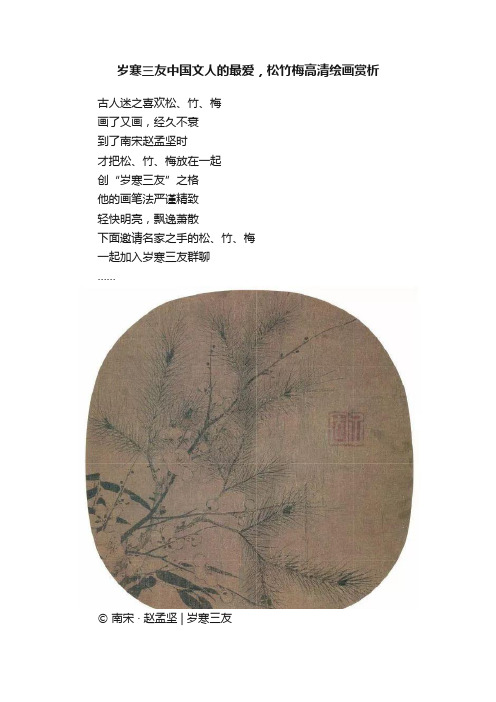 岁寒三友中国文人的最爱，松竹梅高清绘画赏析
古人迷之喜欢松、竹、梅
画了又画，经久不衰
到了南宋赵孟坚时
才把松、竹、梅放在一起
创“岁寒三友”之格
他的画笔法严谨精致
轻快明亮，飘逸萧散
下面邀请名家之手的松、竹、梅
一起加入岁寒三友群聊
……
© 南宋 · 赵孟坚 | 岁寒三友